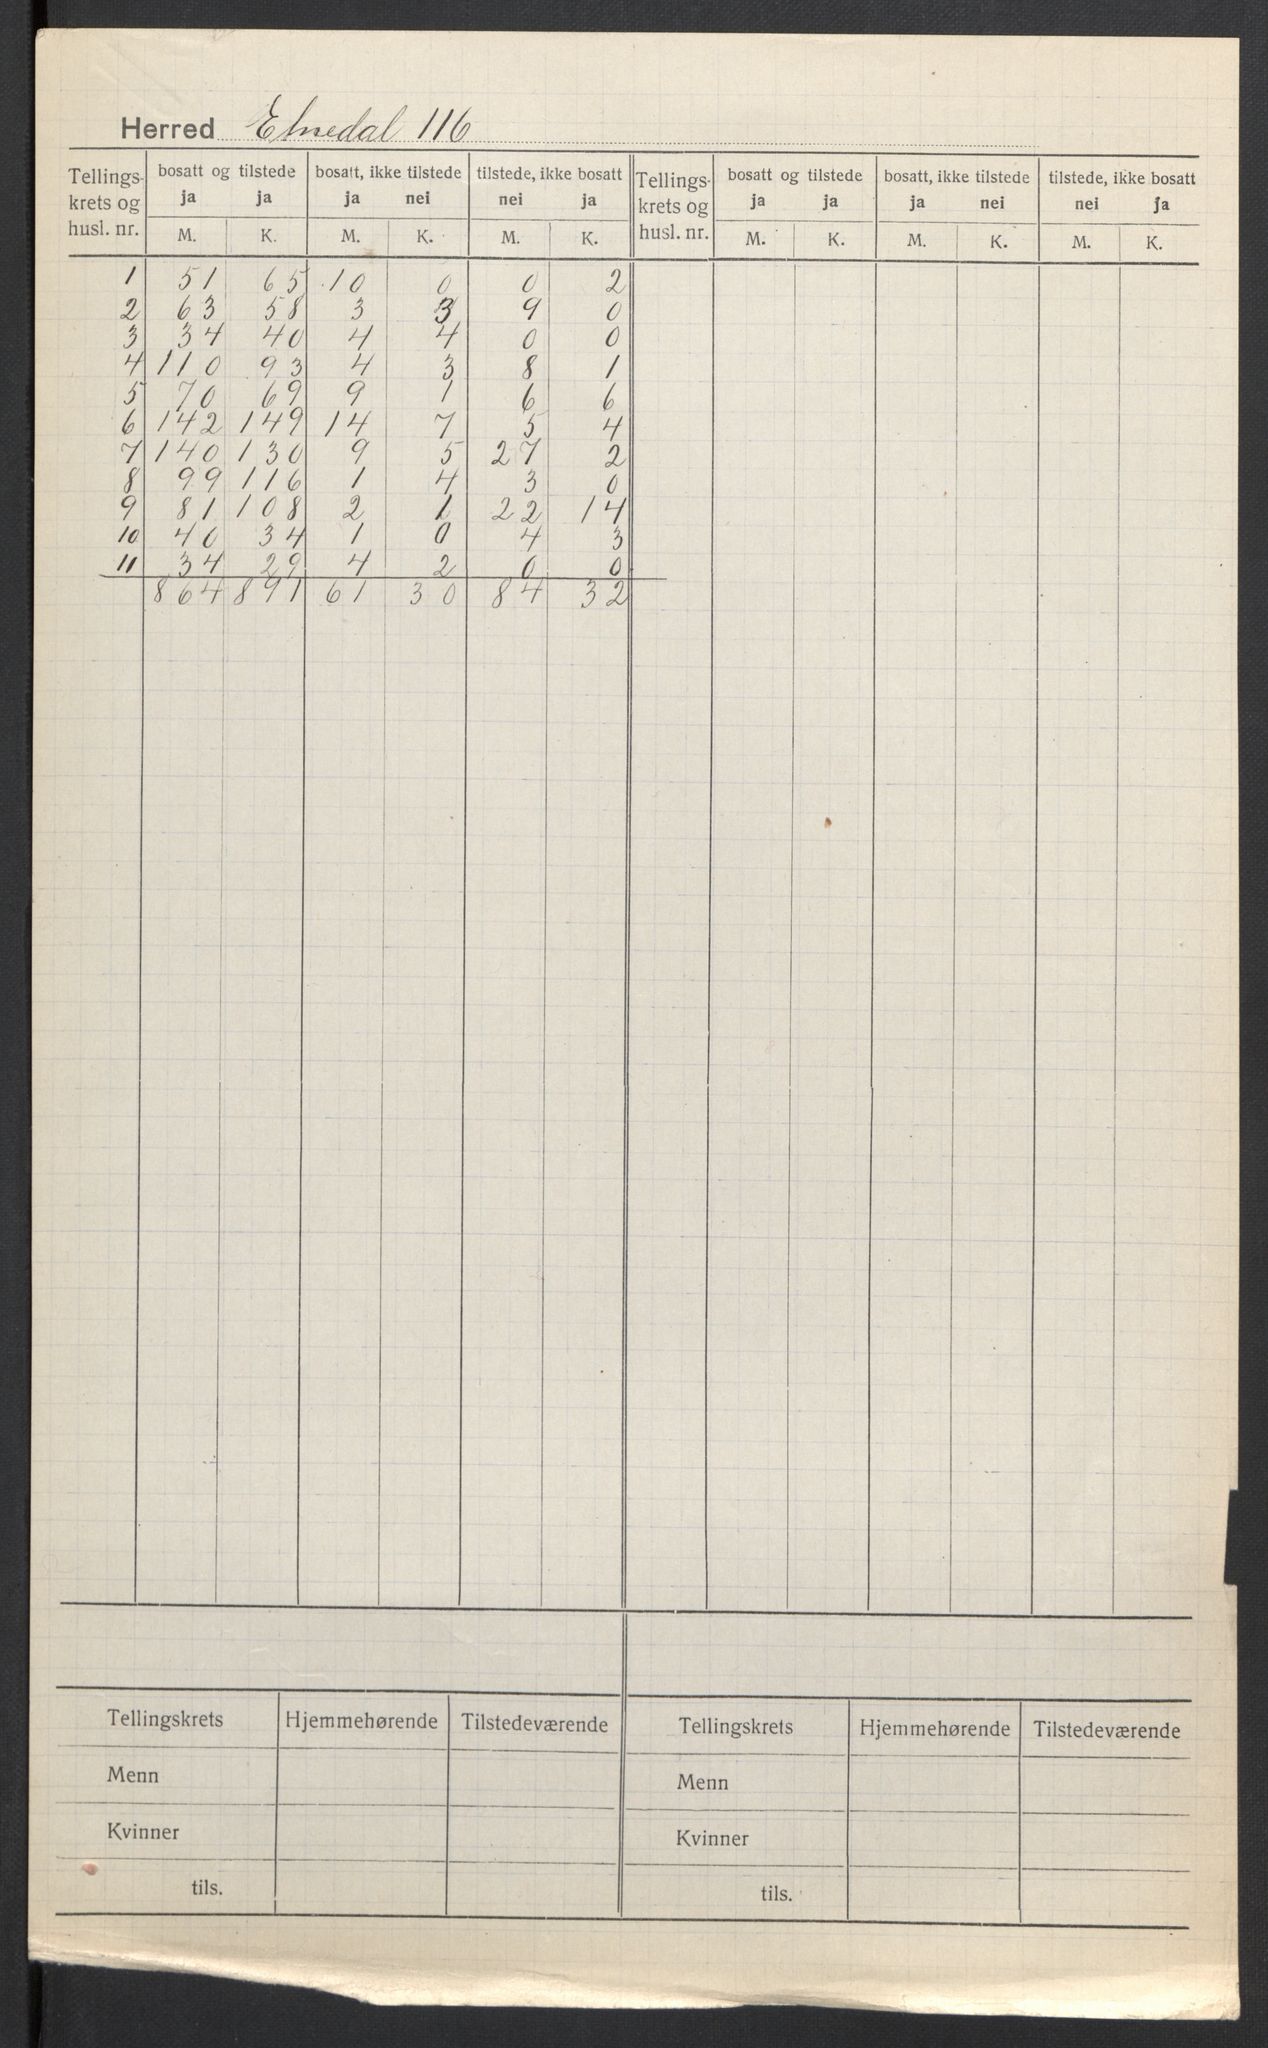 Herred Etnedal 116
Tellings- krets og husl. nr. | bosatt og tilstede | bosatt, ikke tilstede | tilstede, ikke bosatt | Tellings- krets og husl. nr. | bosatt og tilstede | bosatt, ikke tilstede | tilstede, ikke bosatt
ja ja ja nei nei ja ja ja ja nei nei ja
M. K. M. K. M. K. M. K. M. K. M. K.
1 51 65 10 0 0 2
2 63 58 3 3 9 0
3 34 40 4 4 0 0
4 110 93 4 3 8 1
5 70 69 9 1 6 6
6 142 149 14 7 5 4
7 140 130 9 5 27 2
8 99 116 1 4 3 0
9 81 108 2 1 22 14
10 40 34 1 0 4 3
11 34 29 4 2 0 0
864 891 61 30 84 32
Tellingskrets Hjemmehørende Tilstedeværende Tellingskrets Hjemmehørende Tilstedeværende
Menn Menn
Kvinner Kvinner
tils. tils.